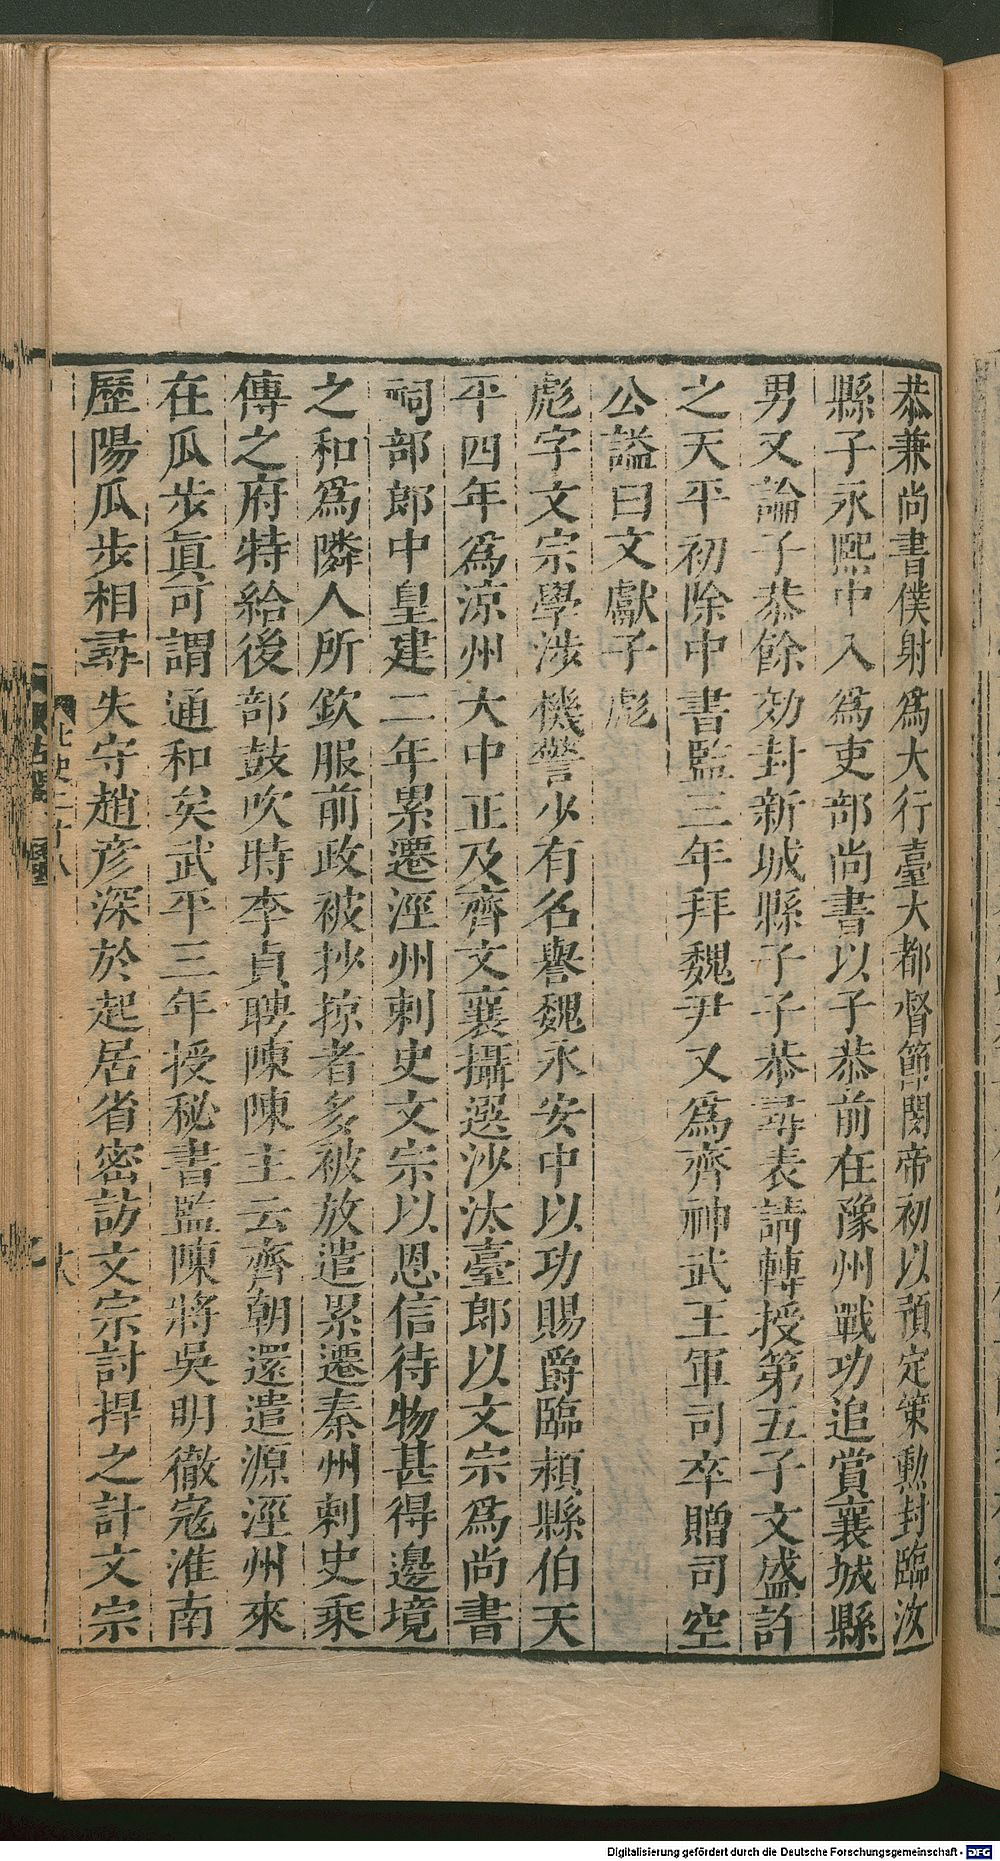 恭兼尚書僕射爲大行臺大都督節閔帝初以預定策勲封臨汝
縣子永熙中入爲吏部尚書以子恭前在豫州戰功追賞襄城縣
男又論子恭餘効封新城縣子子恭尋表請轉授第五子文盛許
之天平初除中書監三年拜魏尹又爲齊神武王軍司卒贈司空
公謚曰文獻子彪
彪字文宗學涉機警少有名譽魏永安中以功賜爵臨潁縣伯天
平四年爲涼州大中正及齊文襄攝選沙汰臺郎以文宗爲尚書
祠部郎中皇建二年累遷涇州刺史文宗以恩信待物甚得邊境
之和爲隣人所欽服前政被抄掠者多被放遣累遷秦州刺史乘
傳之府特給後部鼓吹時李貞聘陳陳主云齊朝還遣源涇州來
在瓜步眞可謂通和矣武平三年授秘書監陳將吳明徹寇淮南
歷陽瓜步相尋失守趙彦深於起居省密訪文宗討捍之計文宗
北史二十八
十八
Digitalisierung gefördert durch die Deutsche Forschungsgemeinschaft - DFG